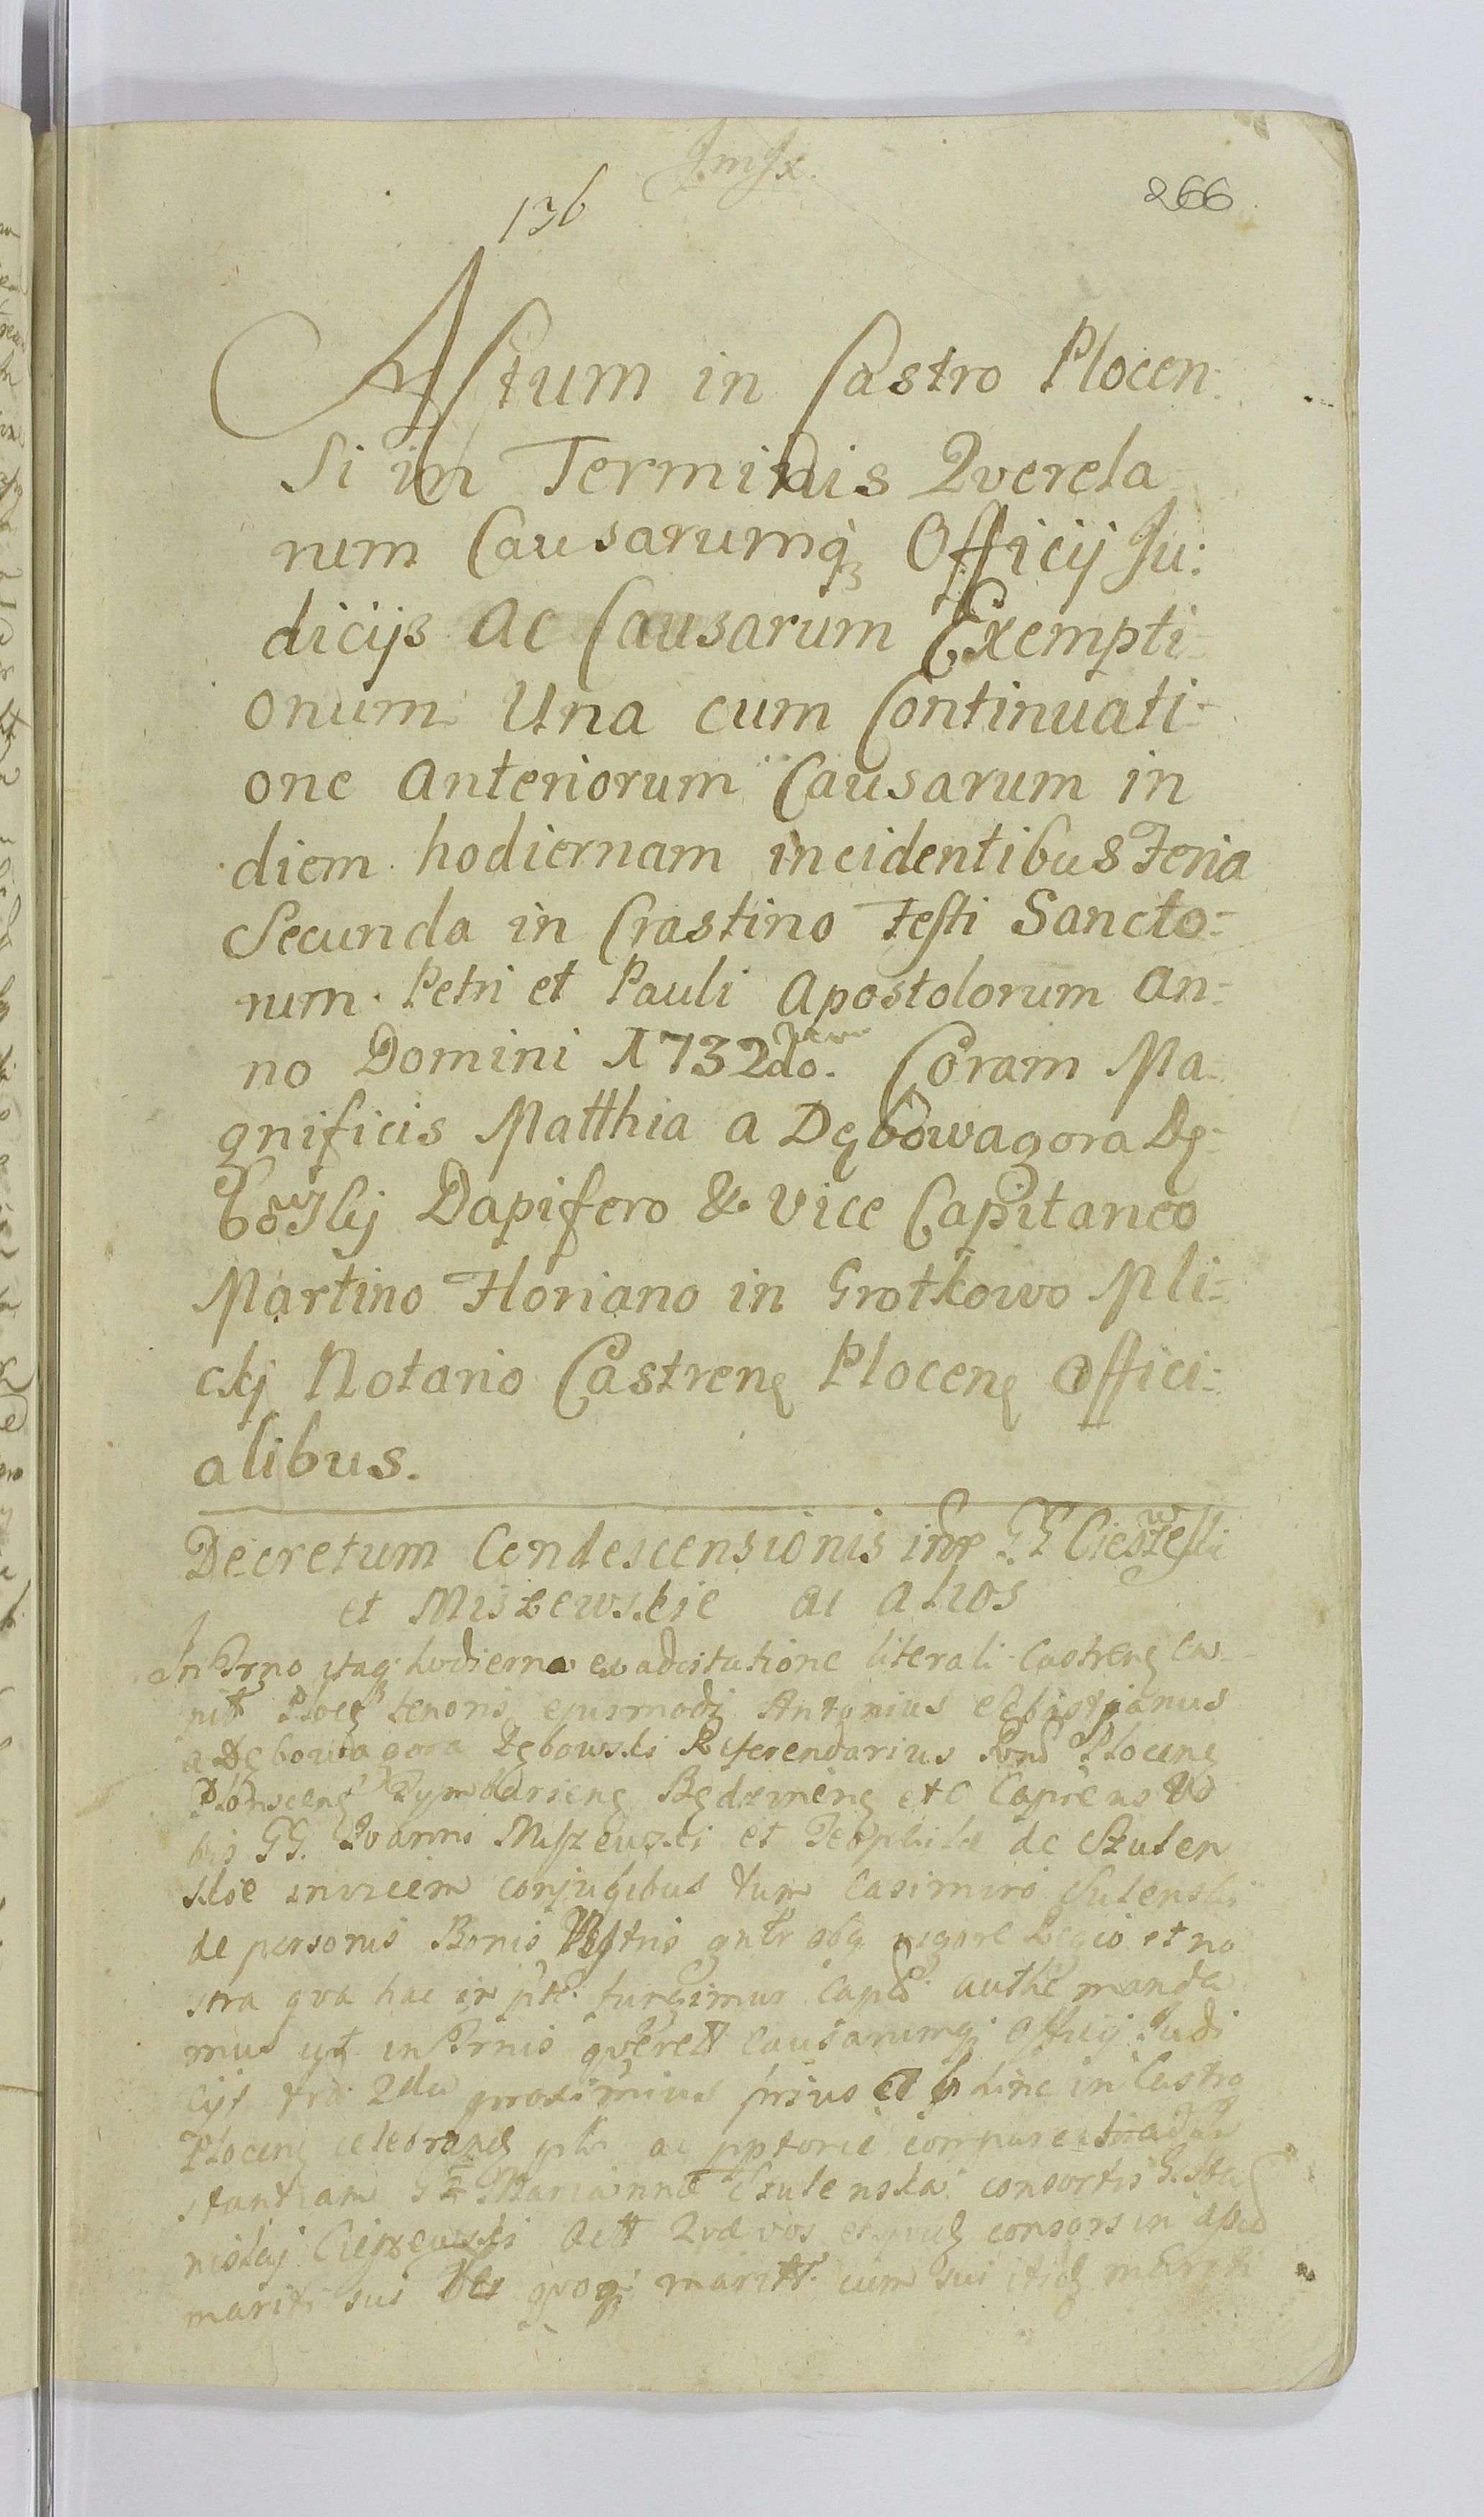 JmJx.
136
266
Actum in Castro Plocen:
si in Terminis Qverela
rum Causarumq Officij Ju:
dicijs ac Causarum Exempti-
onum Una cum Continuati-
one anteriorum Causarum in
diem hodiernam incidentibus Feria
Secunda in Crastino Festi Sancto-
rum Petri et Pauli Apostolorum an-
no Domini 1732do. Coram Ma-
gnificis Matthia a Dębowagora Dę-
bowskj Dapifero & Vice Capitaneo
Martino Floriano in Grotkowo Mli-
ckj Notario Castrenę Plocenę Offici-
alibus.
Decretum Condescensionis inter GG
et Miszewskie ac alios
In Trno itaq hodierna ex adcitatione literali Castrenę
tenoris ejusmodi Antonius Sebastianus
a Dębowagora Dębowski Referendarius Plocenę
Będzinenę etc Capneus Vo
bis GG. Joanni Miszewski et Teophila de Szulen
skie invicem conjugibus tum Casimiro Sulenski
de personis Bonis Vestris vigore Regio et no
stra qva hac in pte fungimur authe manda
mus in Trnis qverell Causarumq Officij Judi
cijs fria 2da proximius prius hinc in Castro
Plocenę celebrandę ac pptorie compareatis ad In
stantiam Marianna Szulenska consortis G. Sta
nislaj Actt Qvæ vos consors in
mariti sui qvoq maritt cum sui mariti